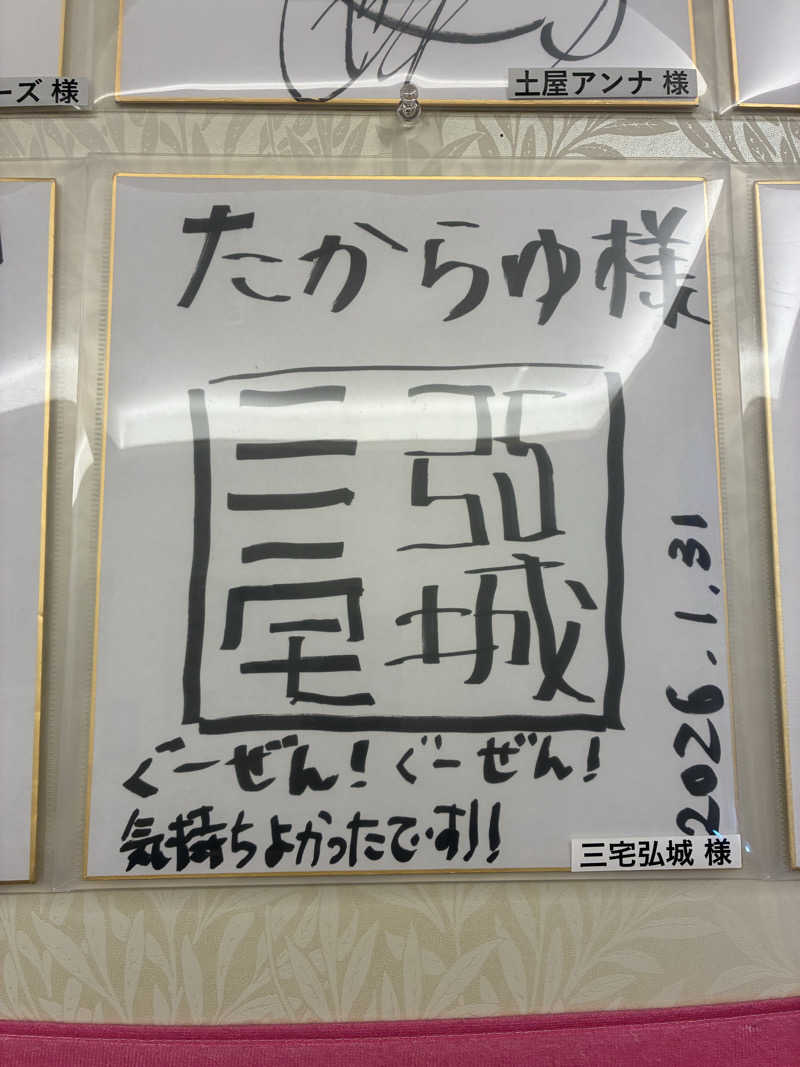 ーズ 様
土屋アンナ 様
たからゆ様
三宅
弘城
2026.1.31
ぐーぜん!ぐーぜん!
気持ちよかったです!!
三宅弘城 様